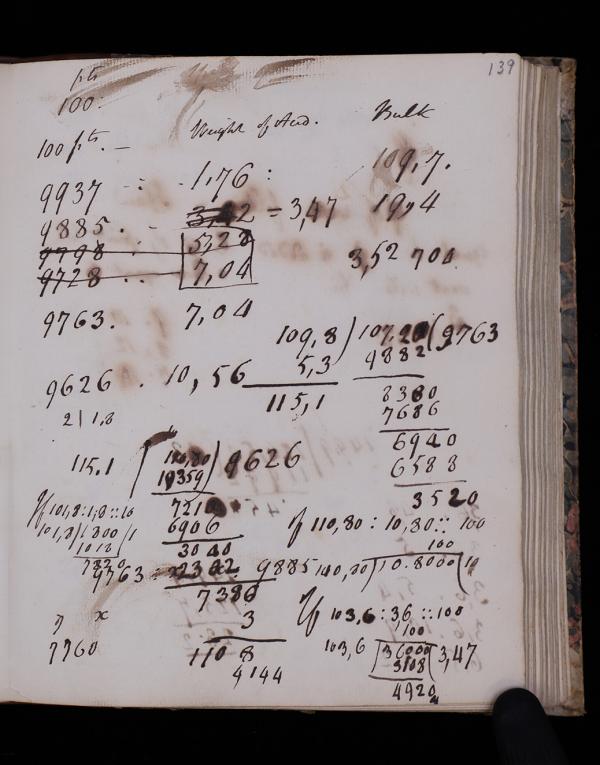 139
pts
100.
Weight of Acid. Bulk
100 pts. —
9937 1,76 : 109,7.
9885. = 3,47 19,4
9798 5328
9728 7,04 3,52 704
9763. 7,04
109,8) 107,20 (9763
5,3 9882
9626 . 10,56
115,1 8380
2 | 1,8 7686
6940
115,1 110,80) 9626 6588
19359 3520
7210
If 101,8:1,8::10 6906 If 110,80 : 10,80 :: 100
101,8)1800/1 3040 100
1018 9885 110,80)10.8000(
7820
9763 = 2302
7386 If 103,6 : 3,6 :: 100
7 x 3 100
7760 110 8 103,6 36000 (3,47
4144 3108
4920